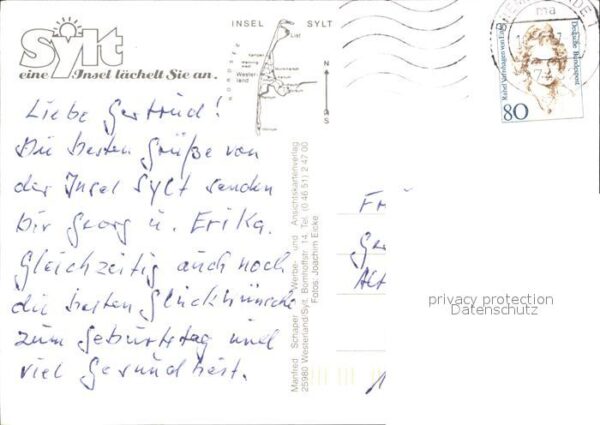 Sylt
eine Insel lächelt Sie an.
INSEL SYLT
List
Kampen
Westerland
NORDSEE
N
S
80
Deutsche Bundespost
Liebe Gertrud!
Die besten Grüße von
der Insel Sylt senden
Dir Georg u. Erika.
Gleichzeitig auch noch
die besten Glückwünsche
zum Geburtstag und
viel Gesundheit.
Manfred Schaper Werbe- und Ansichtskartenverlag
25980 Westerland/Sylt, Bomhoffstr. 14, Tel. (0 46 51) 2 47 00
Fotos: Joachim Eicke
Fr
Ger
Alt
privacy protection
Datenschutz